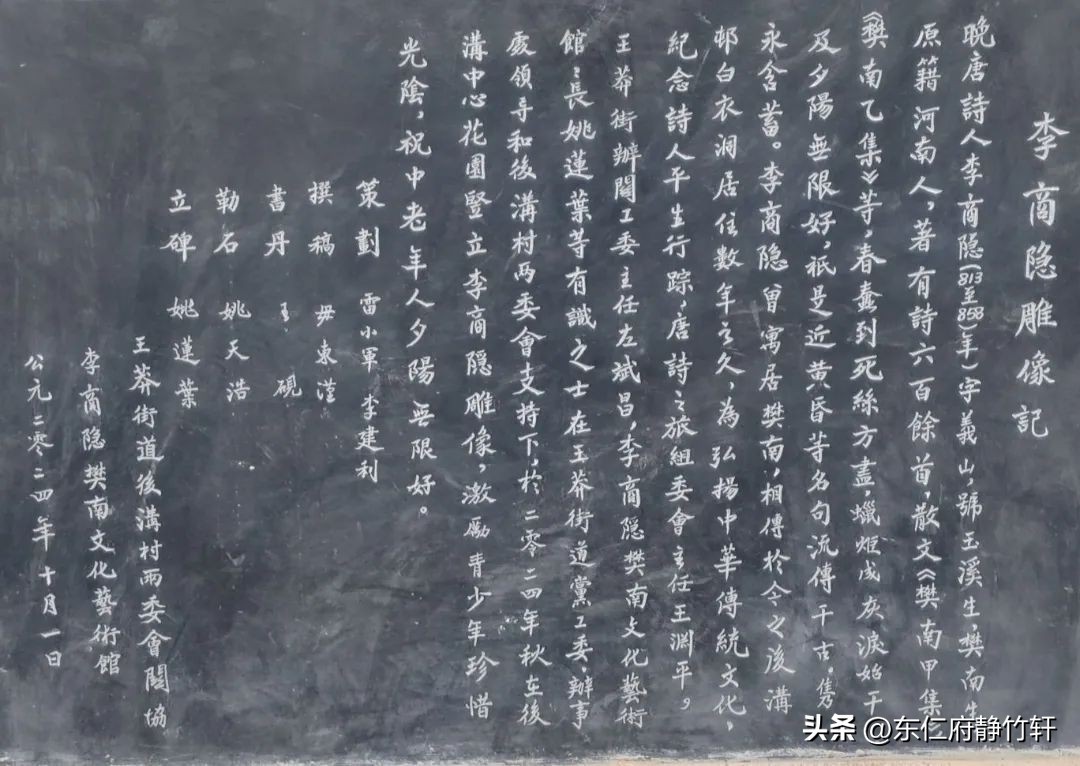 李商隐雕像记
晚唐詩人李商隐(813至858年)字義山,號玉溪生,樊南生
原籍河南人,著有詩六百餘首,散文《樊南甲集》
《樊南乙集》等,春蚕到死絲方盡,蠟炬成灰淚始干
及夕陽無限好,祇是近黄昏等名句流傳千古,隽
永含蓄。李商隐曾寓居樊南,相傳於今之後溝
邨白衣洞居住數年之久,為弘揚中華傳統文化,
纪念詩人平生行踪,唐詩之旅組委會主任王渊平,
王莽街辦關工委主任左斌昌,李商隐樊南文化藝術
館館長姚蓮葉等有識之士在王莽街道黨工委,辦事
處領导和後溝村两委會支持下,於二零二四年秋在後
溝中心花園豎立李商隐雕像,激勵青少年珍惜
光陰,祝中老年人夕陽無限好。
策劃 雷小軍 李建利
撰稿 毋東漢
書丹 王硯
勒石 姚天浩
立碑 姚蓮葉
王莽街道後溝村兩委會關協
李商隐樊南文化藝術館
公元二零二四年十月一日
头条 @东仁府静竹轩